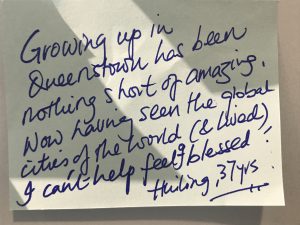 Growing up in
Queenstown has been
nothing short of amazing.
Now having seen the global
cities of the world (& lived)
I can't help feel blessed!
Huiling, 37yrs.